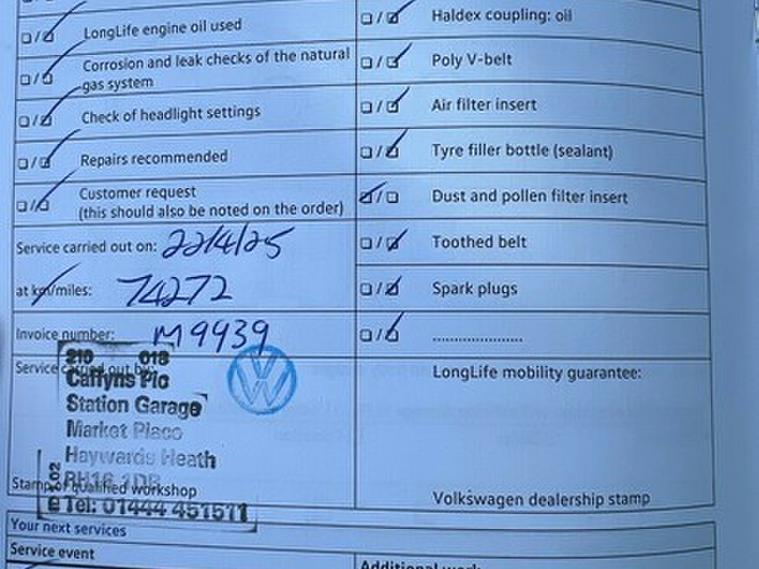 LongLife engine oil used
Corrosion and leak checks of the natural
gas system
Check of headlight settings
Repairs recommended
Customer request
(this should also be noted on the order)
Service carried out on: 22/4/25
at km/miles: 74272
Invoice number: M9939
Service carried out by:
210 018
Caffyns Plc
Station Garage
Market Place
Haywards Heath
RH16 1DB
Tel: 01444 451511
Stamp of qualified workshop
Haldex coupling: oil
Poly V-belt
Air filter insert
Tyre filler bottle (sealant)
Dust and pollen filter insert
Toothed belt
Spark plugs
....................
LongLife mobility guarantee:
Volkswagen dealership stamp
Your next services
Service event
Additional work